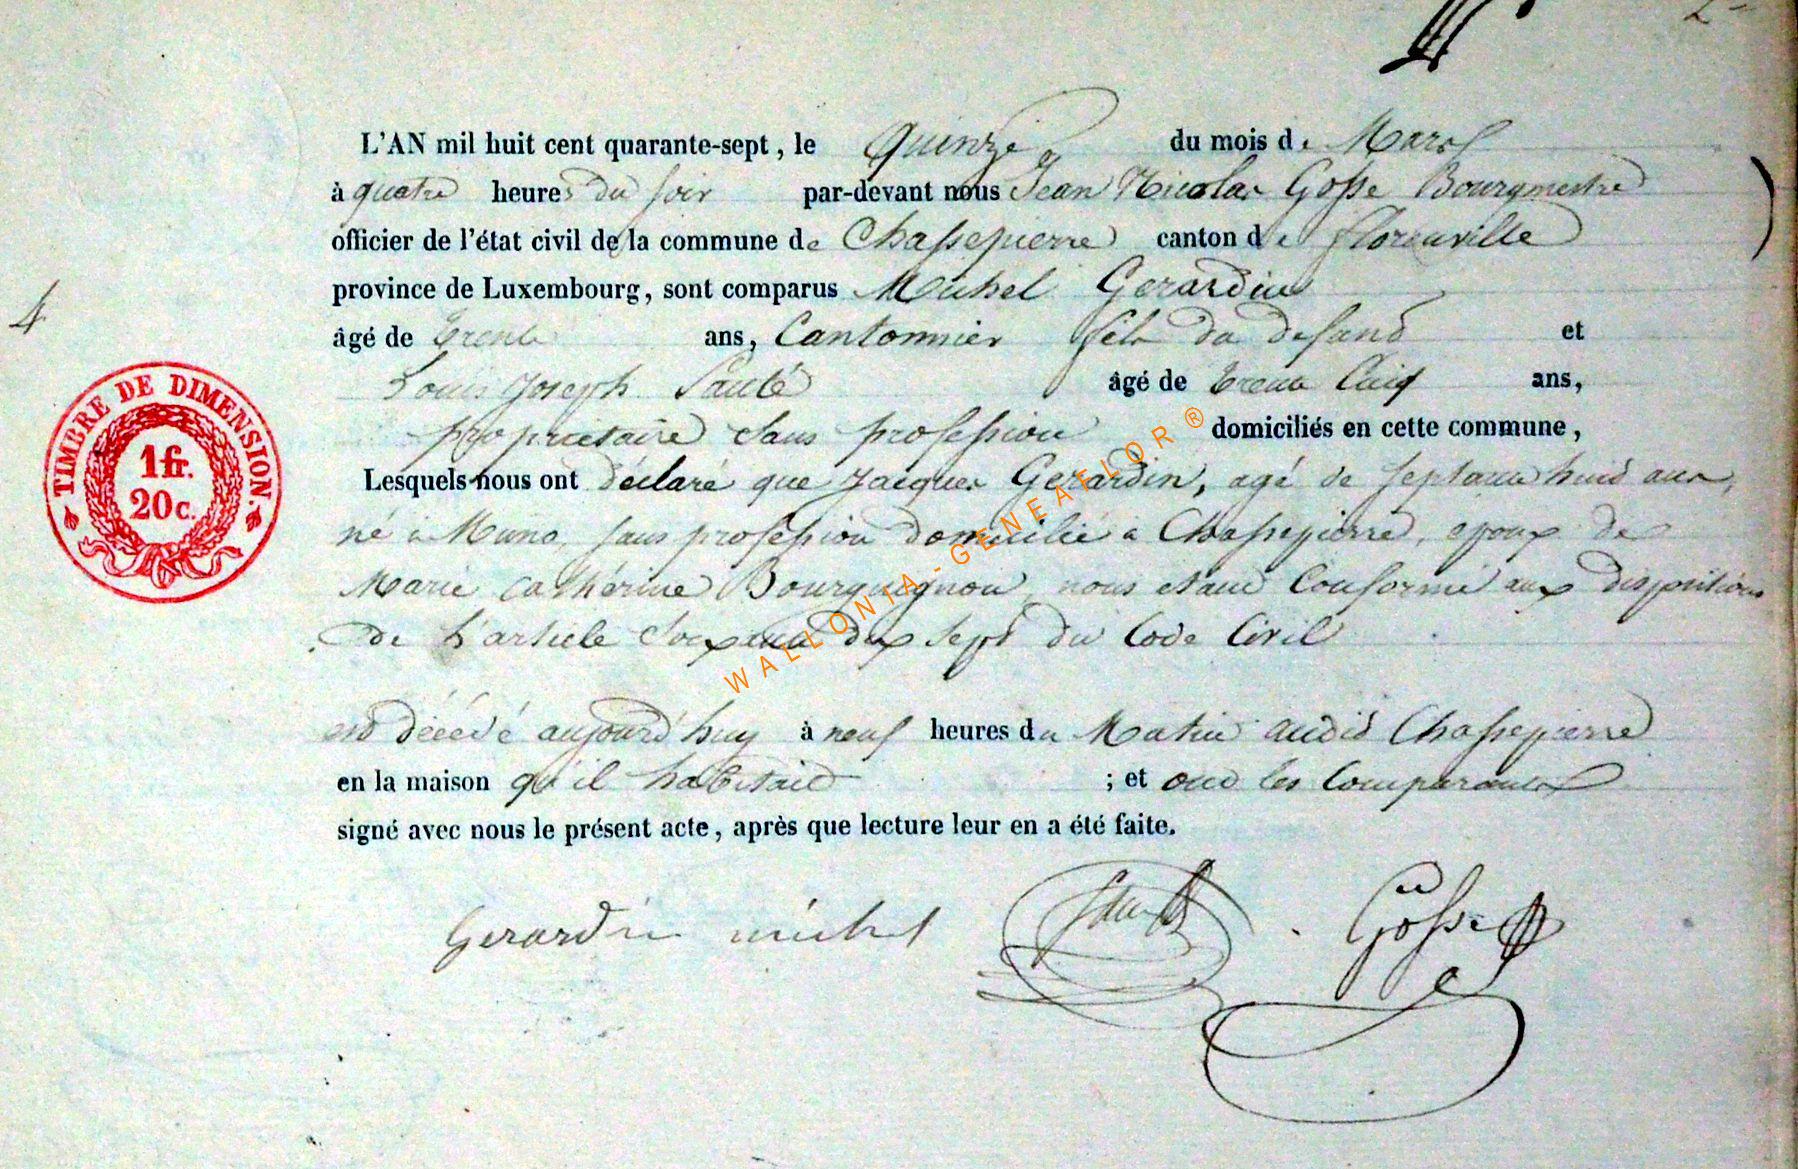 2
L'AN mil huit cent quarante-sept, le Quinze du mois de Mars
à quatre heures du soir par-devant nous Jean Nicolas Gosse Bourgmestre
officier de l'état civil de la commune de Chassepierre canton de florenville
province de Luxembourg, sont comparus Michel Gerardin
4
âgé de trente ans, Cantonnier fils du defand et
Louis Joseph Sauté âgé de trente Cinq ans,
propriétaire sans profession domiciliés en cette commune,
Lesquels nous ont déclaré que Jacques Gerardin, agé de septante huid ans,
né à Muno, sans profession domicilié à Chassepierre, epoux de
Marie Cathérine Bourguignon, nous etant Conformé aux dispositions
de L'article Soixante dix sept du Code Civil
est décédé aujourd'huy à neuf heures du Matin audid Chassepierre
en la maison qu'il habitaid ; et ond les Comparants
signé avec nous le présent acte, après que lecture leur en a été faite.
Gerardin michel Gosse
TIMBRE DE DIMENSION.
1fr.
20c.
WALLONIA-GENEAFLO.R ®